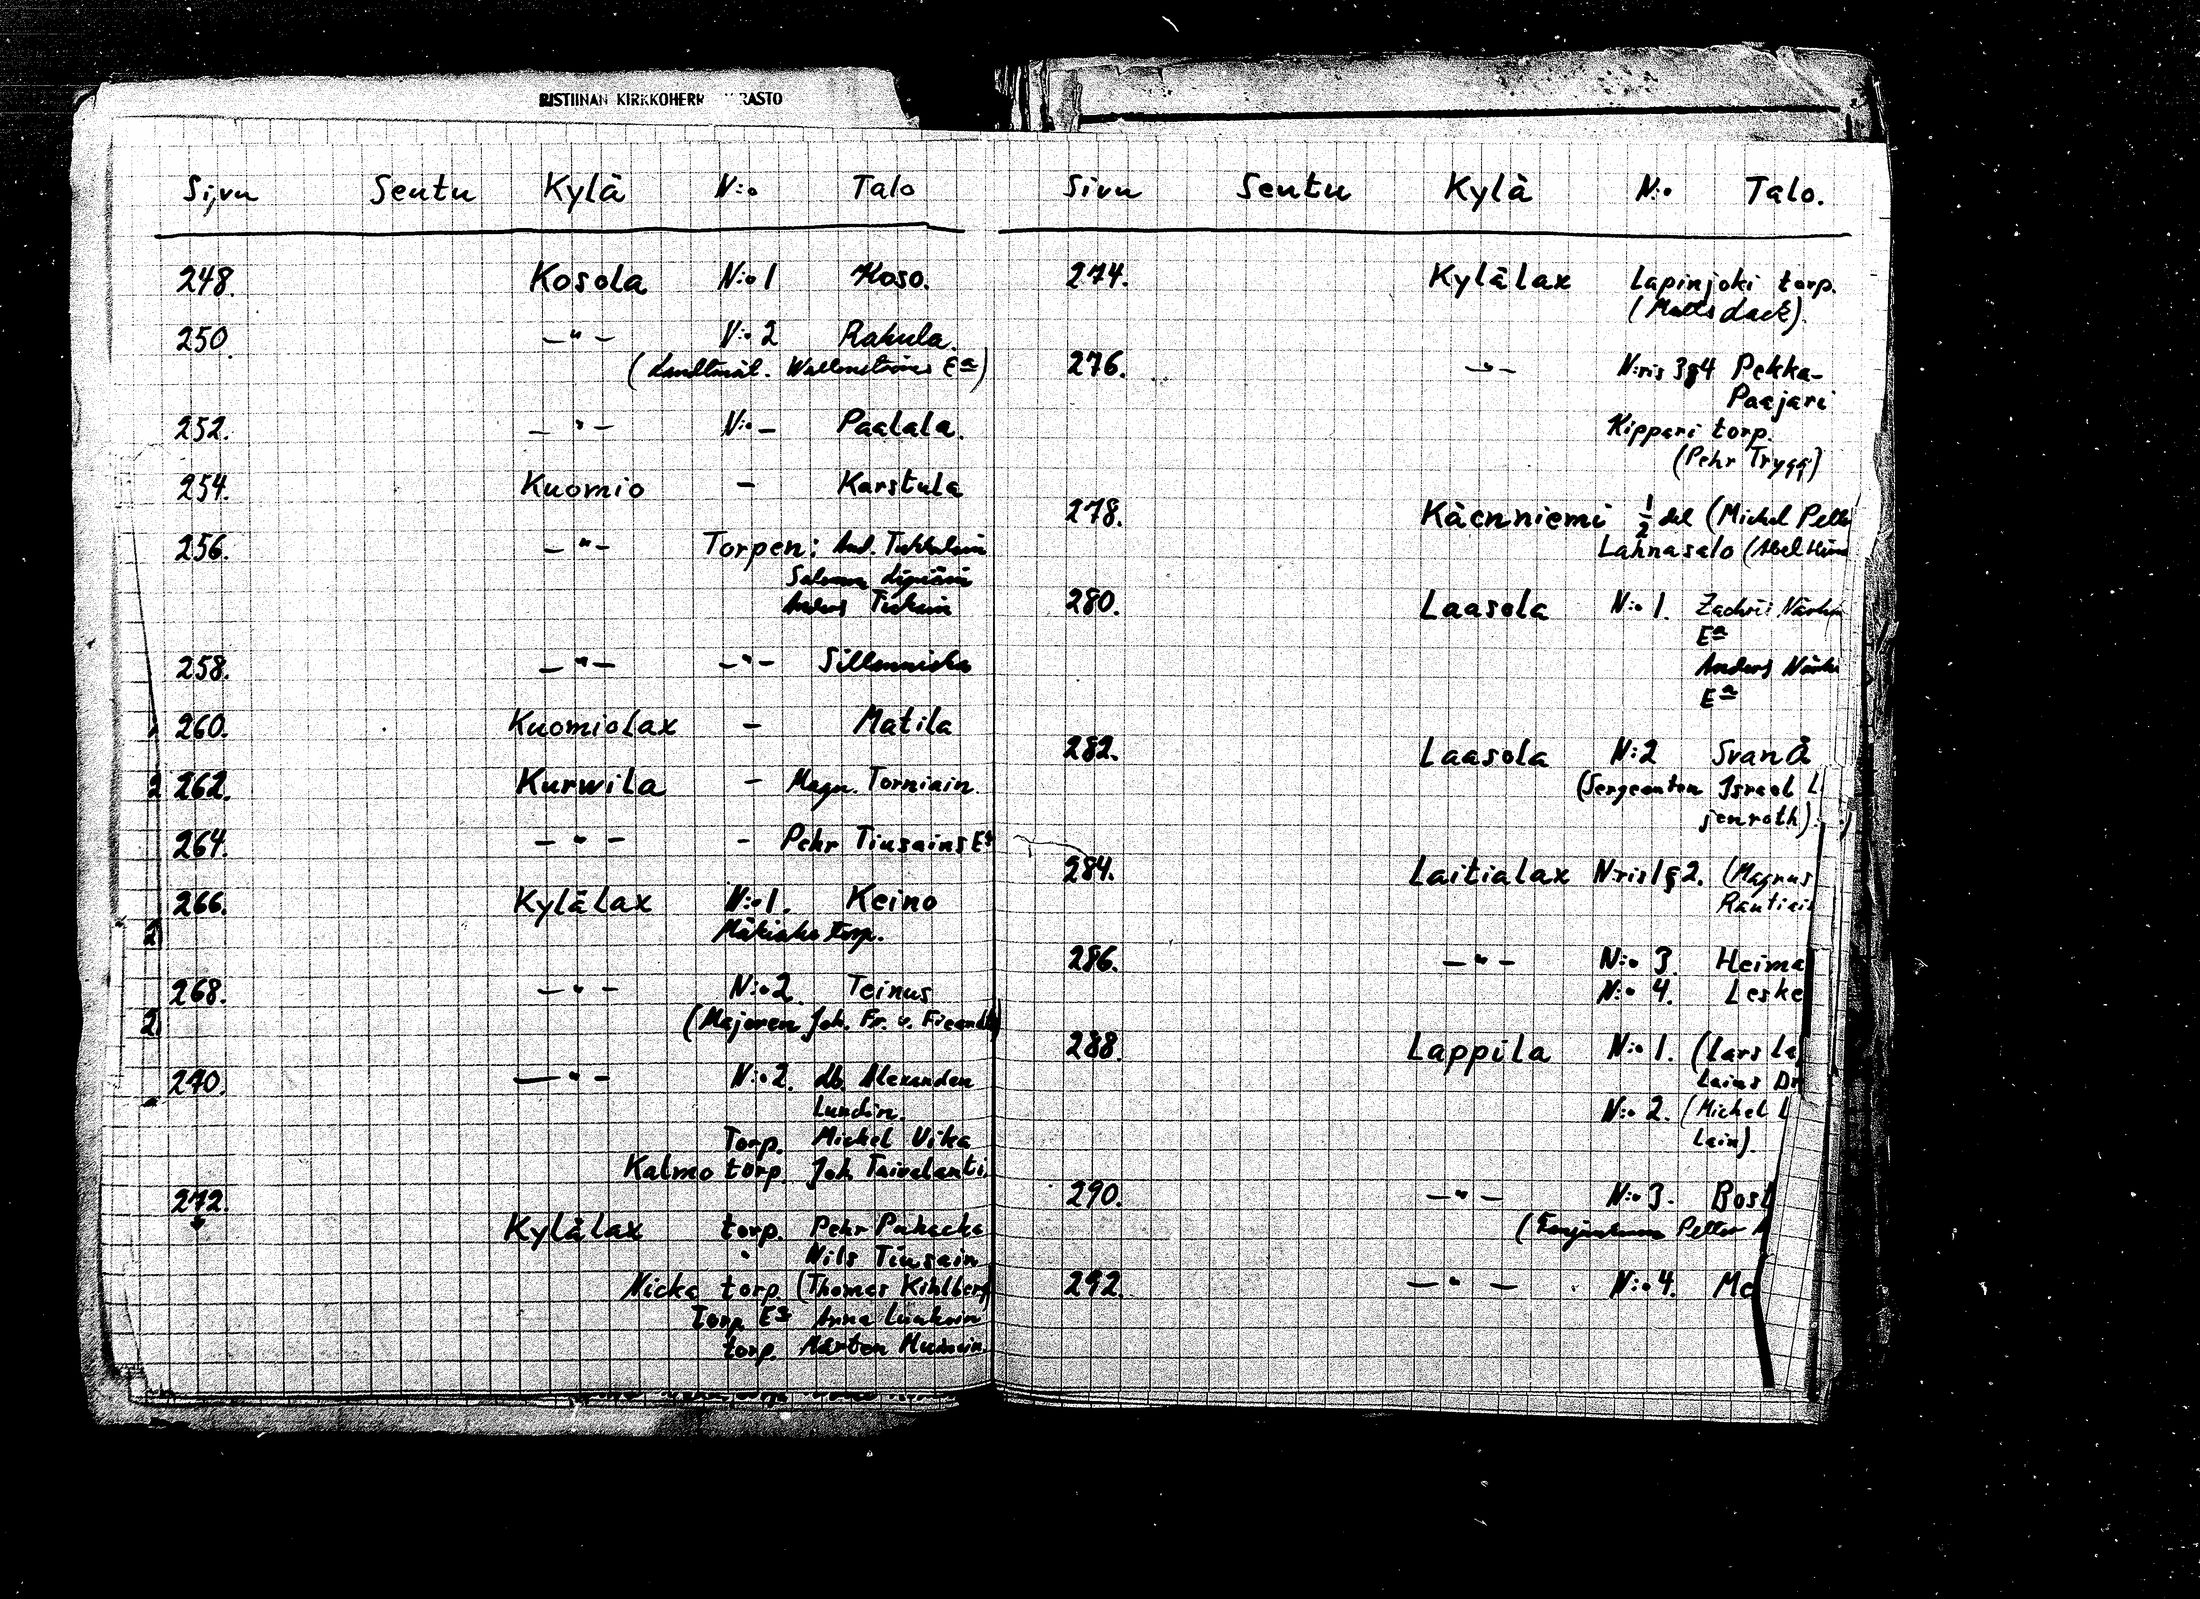 RISTIINAN KIRKKOHERR RASTO
Sivu Seutu Kylä N:o Talo
248. Kosola N:o 1 Koso.
250. —"— N:o 2 Rahula.
( Landtmät. Wallenströms Eª)
252. —"— N:o — Paalala.
254. Kuomio — Karstula
256. —"— Torpen: And.
Anders
258. —"— —"— Sillanniska
260. Kuomiolax — Matila
262. Kurwila — Magn. Torniain.
264. —"— — Pehr Tiusains Eª
266. Kylälax N:o 1. Keino
torp.
268. —"— N:o 2. Teinus
(Majoren Joh. Fr. v. Fieandt)
270. —"— N:o 2. Alexander
Lundin.
Torp. Michel Vika
Kalmo torp. Joh. Taivalanti.
272.
Kylälax torp. Pehr
" Nils Tiusain
Nicka torp. (Thomas Kihlberg)
Torp Eª Anna
torp. Mårten
Sivu Seutu Kylä N:o Talo.
274. Kylälax Lapinjoki torp.
(Matts
276. —"— N:ris 3 & 4 Pekka-
Paajari
Kippari torp.
(Pehr Trygg)
278. Käenniemi ½ del (Michel Pelle
Lahnasalo (Abel
280. Laasola N:o 1. Zachris
Eª
Anders
Eª
282. Laasola N:2 Svanå
(Sergeanten Israel L
jenroth).
284. Laitialax N:ris 1 & 2. (Magnus
Rautiai
286. —"— N:o 3. Heima
N:o 4. Leske
288. Lappila N:o 1. (Lars La
Lains
N:o 2. (Michel L
Lain).
290. —"— N:o 3. Bost
Petter
292. —"— N:o 4. Me